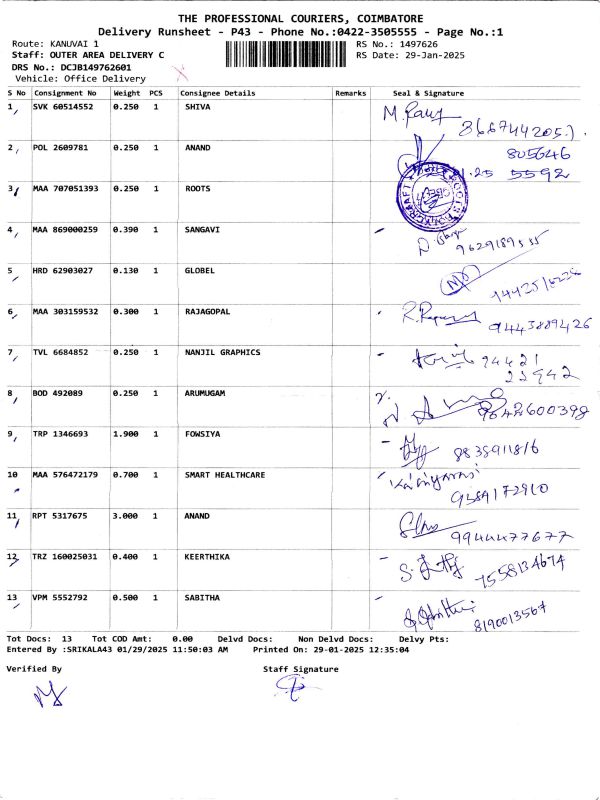 THE PROFESSIONAL COURIERS, COIMBATORE
Delivery Runsheet - P43 - Phone No.:0422-3505555 - Page No.:1
Route: KANUVAI 1
RS No.: 1497626
Staff: OUTER AREA DELIVERY C
RS Date: 29-Jan-2025
DRS No.: DCJB149762601
Vehicle: Office Delivery
S No Consignment No Weight PCS Consignee Details Remarks Seal & Signature
1 SVK 60514552 0.250 1 SHIVA
2 POL 2609781 0.250 1 ANAND 805646
3 MAA 707051393 0.250 1 ROOTS 5592
4 MAA 869000259 0.390 1 SANGAVI
5 HRD 62903027 0.130 1 GLOBEL
6 MAA 303159532 0.300 1 RAJAGOPAL 9443889426
7 TVL 6684852 0.250 1 NANJIL GRAPHICS 94421
22942
8 BOD 492089 0.250 1 ARUMUGAM
9 TRP 1346693 1.900 1 FOWSIYA
10 MAA 576472179 0.700 1 SMART HEALTHCARE
11 RPT 5317675 3.000 1 ANAND 9944477677
12 TRZ 160025031 0.400 1 KEERTHIKA 7558134674
13 VPM 5552792 0.500 1 SABITHA 8190013567
Tot Docs: 13 Tot COD Amt: 0.00 Delvd Docs: Non Delvd Docs: Delvy Pts:
Entered By :SRIKALA43 01/29/2025 11:50:03 AM Printed On: 29-01-2025 12:35:04
Verified By Staff Signature